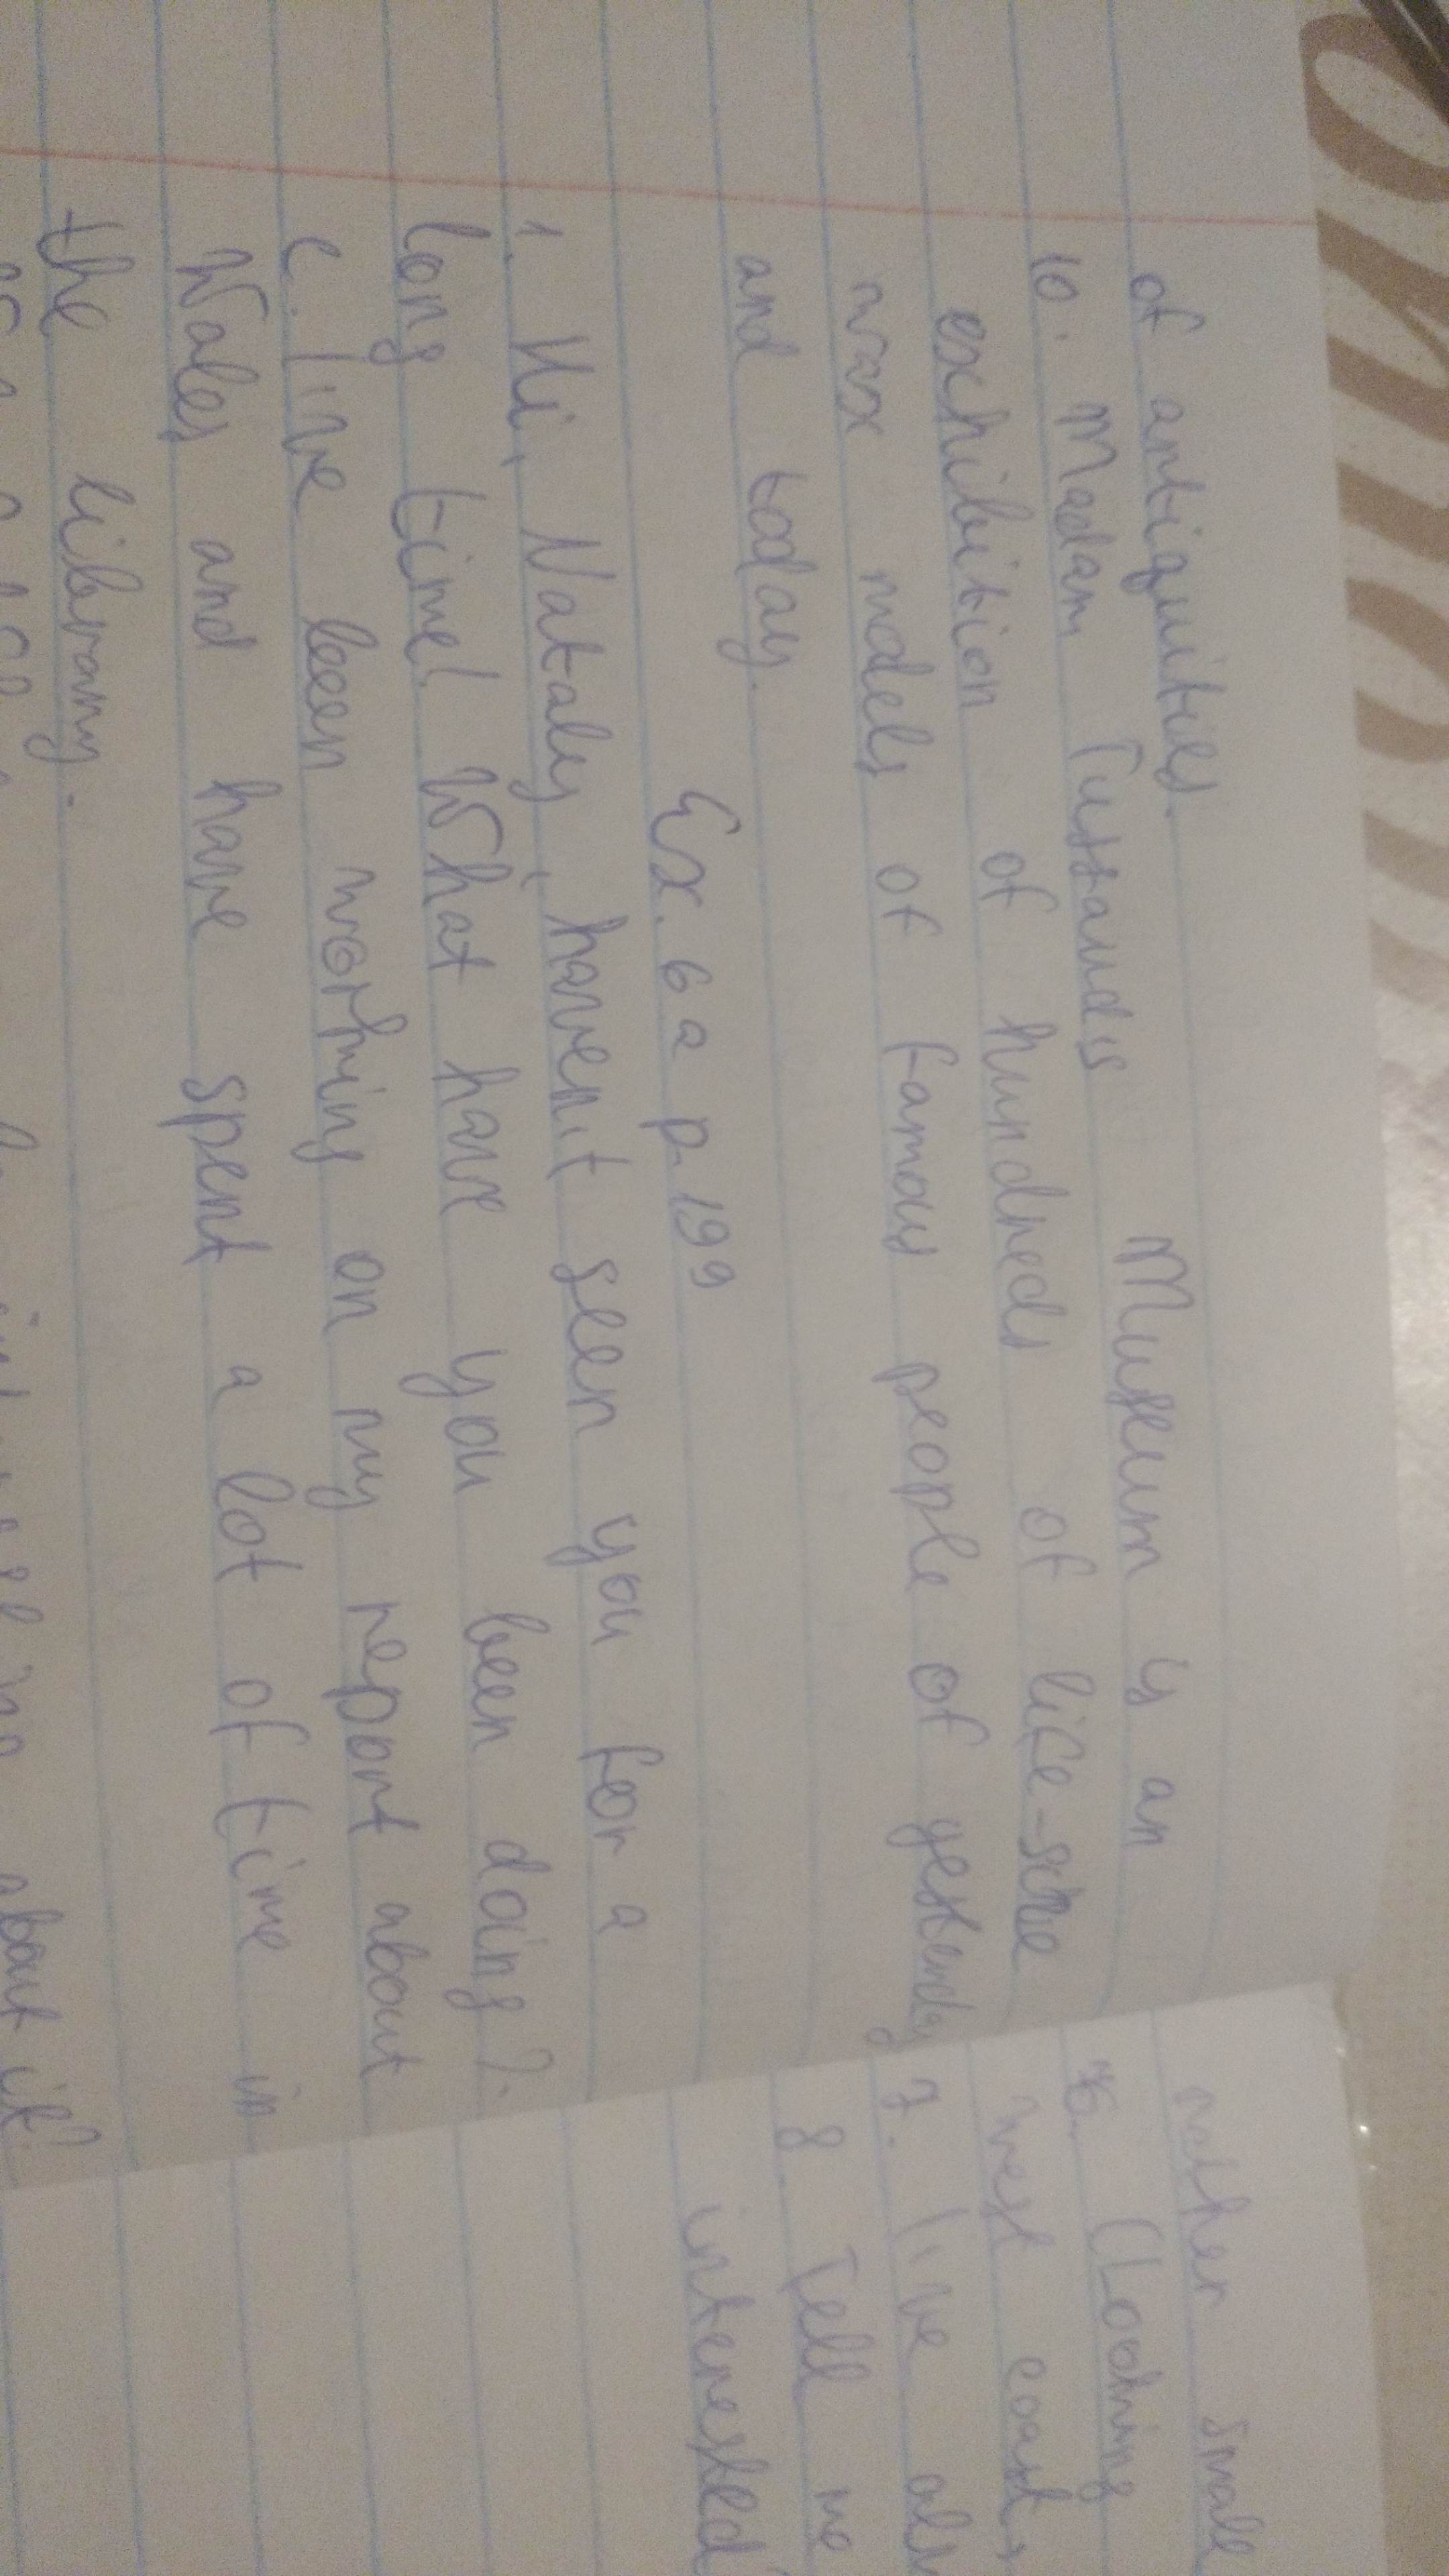 of antiquities.
10. Madam Tussaud's Museum is an
exhibition of hundreds of life-size
wax models of famous people of yesterday
and today.
Ex. 6 a p. 199
1. Hi, Nataly, haven't seen you for a
long time! What have you been doing?
c. I've been working on my report about
Wales and have spent a lot of time in
the library.
about it?
rather small
6. (Looking
west coast,
7. I've
8. Tell me
interested